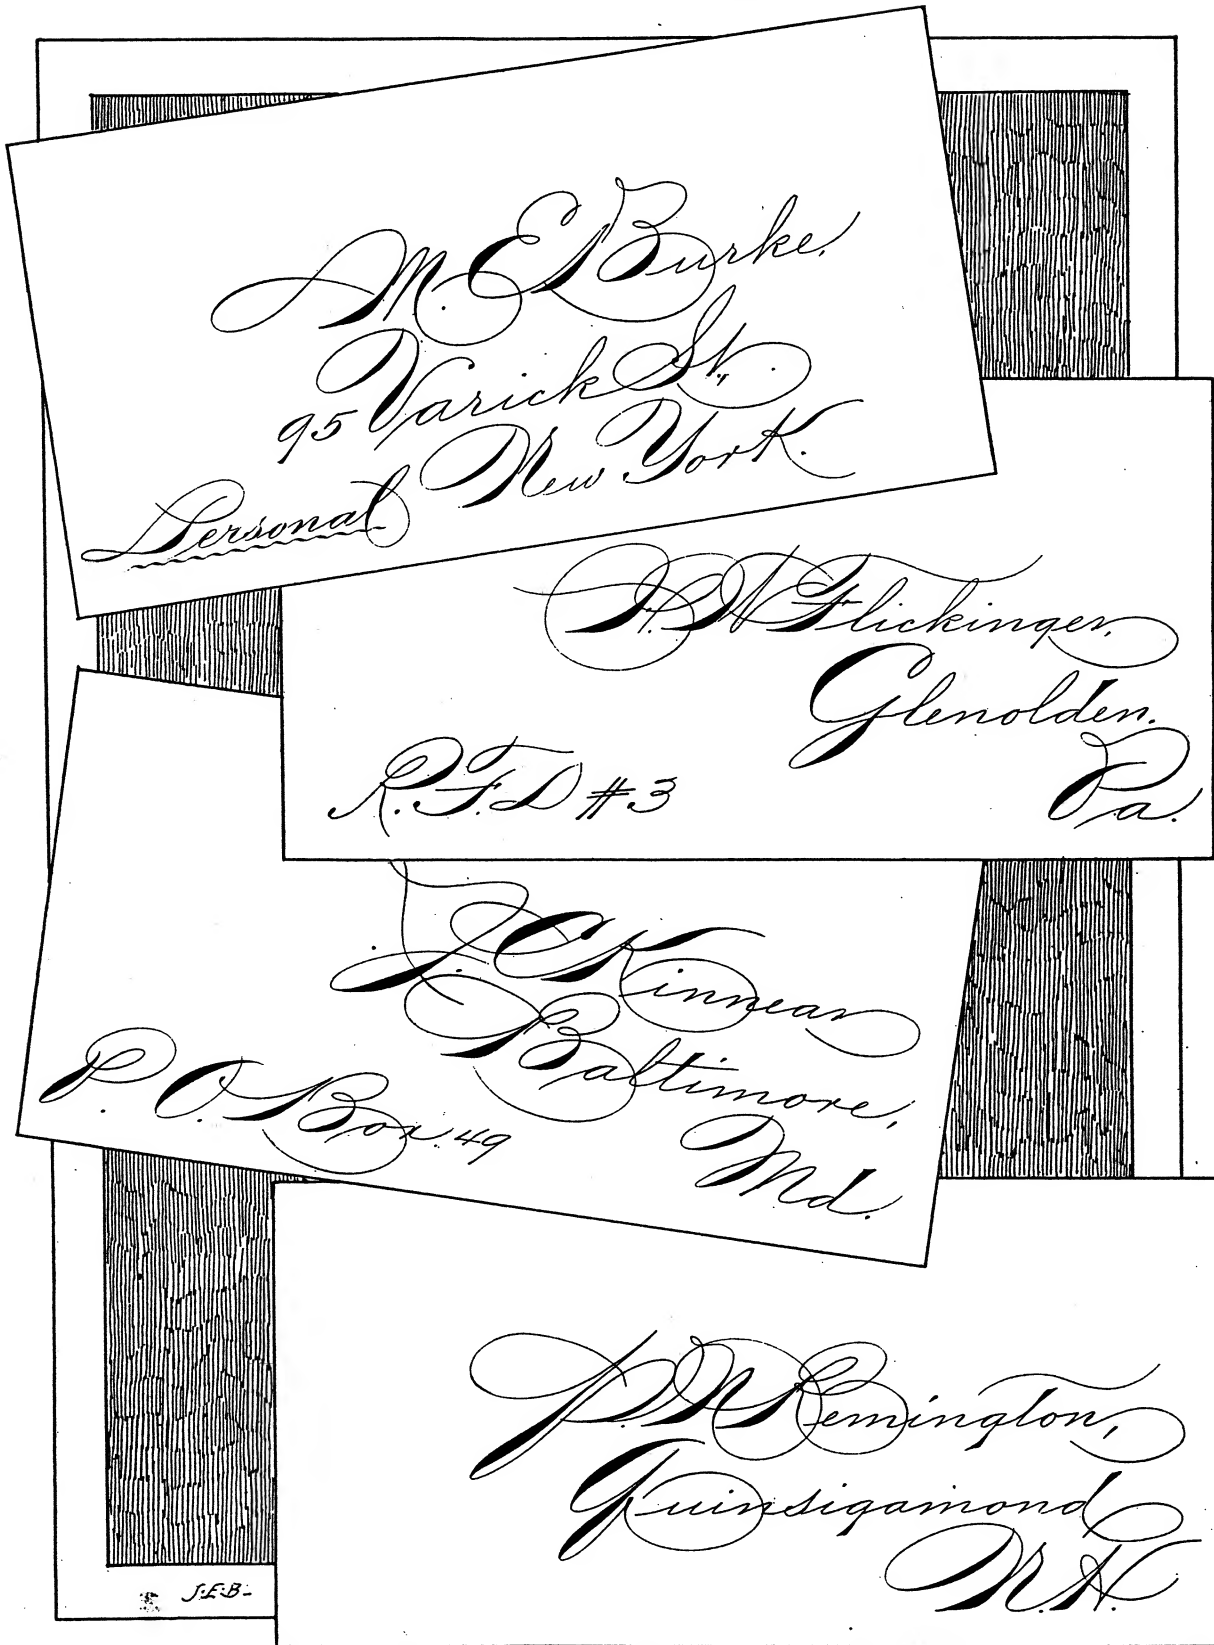 M. E. Burke,
95 Varick St.,
New York.
Personal
H. N. Flickinger,
Glenolden.
Pa.
R. F. D #3
J. C. Kinnear
Baltimore,
Md.
P. O. Box 49
P. N. Remington,
Quinsigamond,
N. H.
J.E.B-